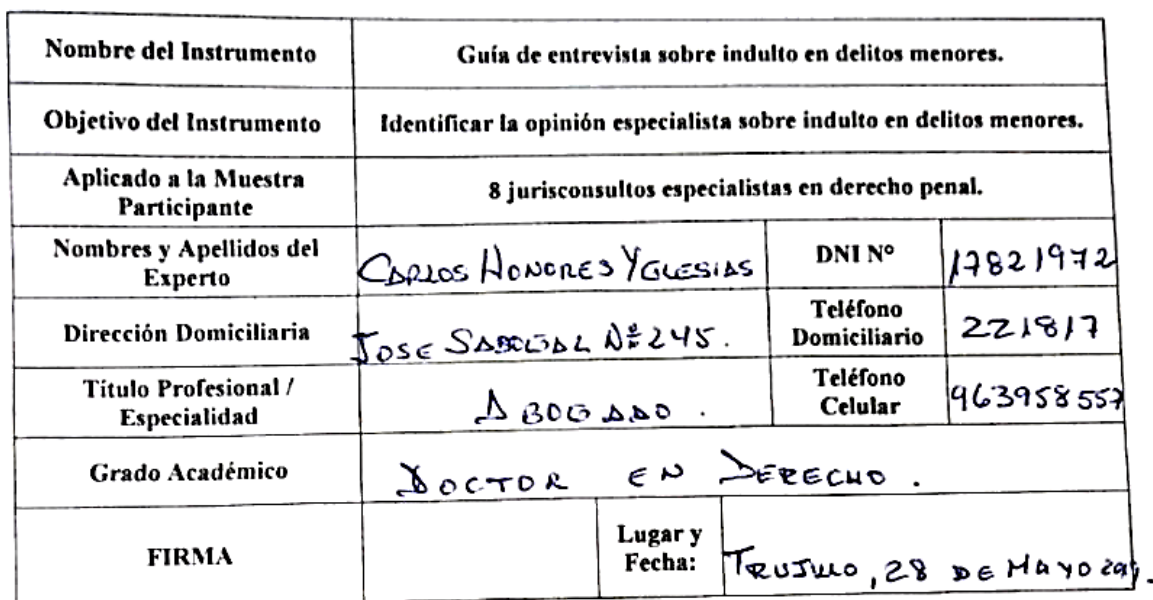 Nombre del Instrumento
Guía de entrevista sobre indulto en delitos menores.
Objetivo del Instrumento
Identificar la opinión especialista sobre indulto en delitos menores.
Aplicado a la Muestra
Participante
8 jurisconsultos especialistas en derecho penal.
Nombres y Apellidos del
Experto
CARLOS HONORES YGLESIAS
DNI Nº
17821972
Dirección Domiciliaria
JOSE SABOGAL Nº 245.
Teléfono
Domiciliario
221817
Título Profesional /
Especialidad
ABOGADO.
Teléfono
Celular
963958557
Grado Académico
DOCTOR EN DERECHO.
FIRMA
Lugar y
Fecha:
TRUJILLO, 28 DE MAYO